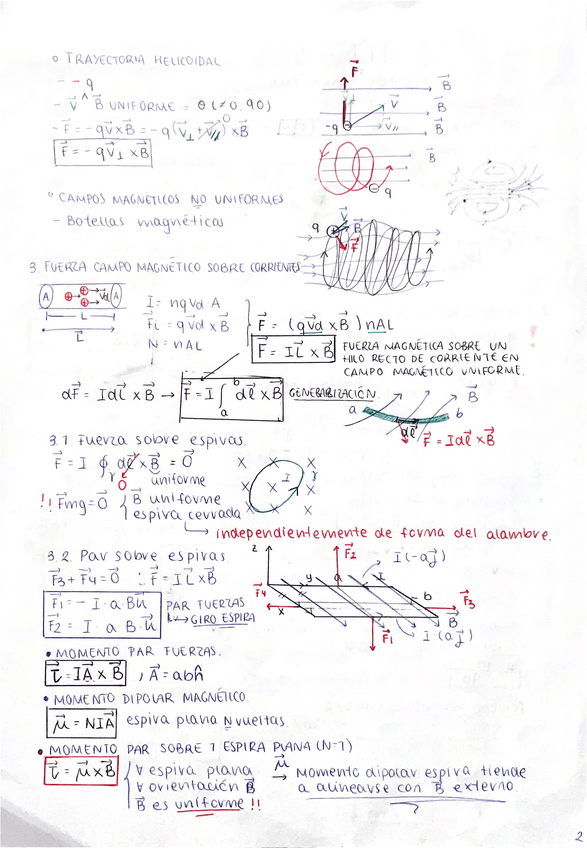 ° TRAYECTORIA HELICOIDAL
- - q
- V⃗ ^ B⃗ UNIFORME = θ (≠ 0, 90)
- F⃗ = -qv⃗×B⃗ = -q(v⃗⊥ + v⃗//)×B⃗
0
F⃗ = -qv⃗⊥ × B⃗
F⃗
B⃗
V⃗
B⃗
-q
V//
B⃗
B⃗
q
° CAMPOS MAGNÉTICOS NO UNIFORMES
- Botellas magnéticas
q
V⃗
B⃗
F⃗
3. FUERZA CAMPO MAGNÉTICO SOBRE CORRIENTES
A
Vd
A
L
L⃗
I = nqvd·A
F⃗i = qv⃗d × B⃗
N = nAL
F⃗ = (qv⃗d × B⃗) nAL
F⃗ = IL⃗ × B⃗
FUERZA MAGNÉTICA SOBRE UN
HILO RECTO DE CORRIENTE EN
CAMPO MAGNÉTICO UNIFORME.
dF⃗ = Idl⃗ × B⃗ → F⃗ = I ∫ₐᵇ dl⃗ × B⃗
GENERALIZACIÓN
a
b
B⃗
dl⃗
F⃗ = Idl⃗ × B⃗
3.1. Fuerza sobre espiras.
F⃗ = I ∮γ dl⃗ × B⃗ = 0⃗
0 uniforme
!! F⃗mg = 0⃗ { B⃗ uniforme
espira cerrada
X X X
X I γ
X X X
↳ independientemente de forma del alambre.
3.2. Par sobre espiras
F⃗3 + F⃗4 = 0⃗ ∴ F⃗ = IL⃗ × B⃗
F⃗1 = -I·a·Bu⃗
F⃗2 = I·a·B·u⃗
PAR FUERZAS
↳ GIRO ESPIRA
z
F⃗2
I(-aj⃗)
F⃗4
y
a
I
b
F⃗3
x
I
B⃗
F⃗1
I(aj⃗)
• MOMENTO PAR FUERZAS.
τ⃗ = IA⃗ × B⃗ , A⃗ = abn̂
• MOMENTO DIPOLAR MAGNÉTICO
μ⃗ = NIA⃗ espira plana N vueltas
• MOMENTO PAR SOBRE 1 ESPIRA PLANA (N=1)
τ⃗ = μ⃗ × B⃗
∀ espira plana
∀ orientación B⃗
B⃗ es uniforme !!
μ⃗
→ Momento dipolar espira tiende
a alinearse con B⃗ externo.
2